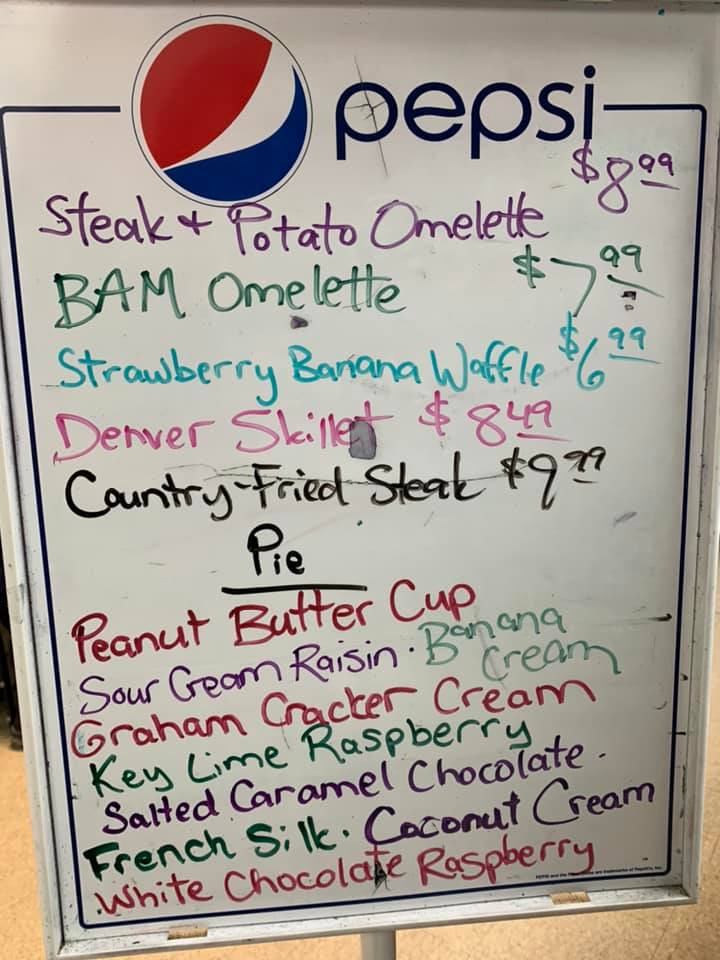 pepsi
Steak + Potato Omelette $8.99
BAM Omelette $7.99
Strawberry Banana Waffle $6.99
Denver Skillet $8.49
Country-Fried Steak $9.99
Pie
Peanut Butter Cup
Sour Cream Raisin · Banana Cream
Graham Cracker Cream
Key Lime Raspberry
Salted Caramel Chocolate ·
French Silk · Coconut Cream
White Chocolate Raspberry